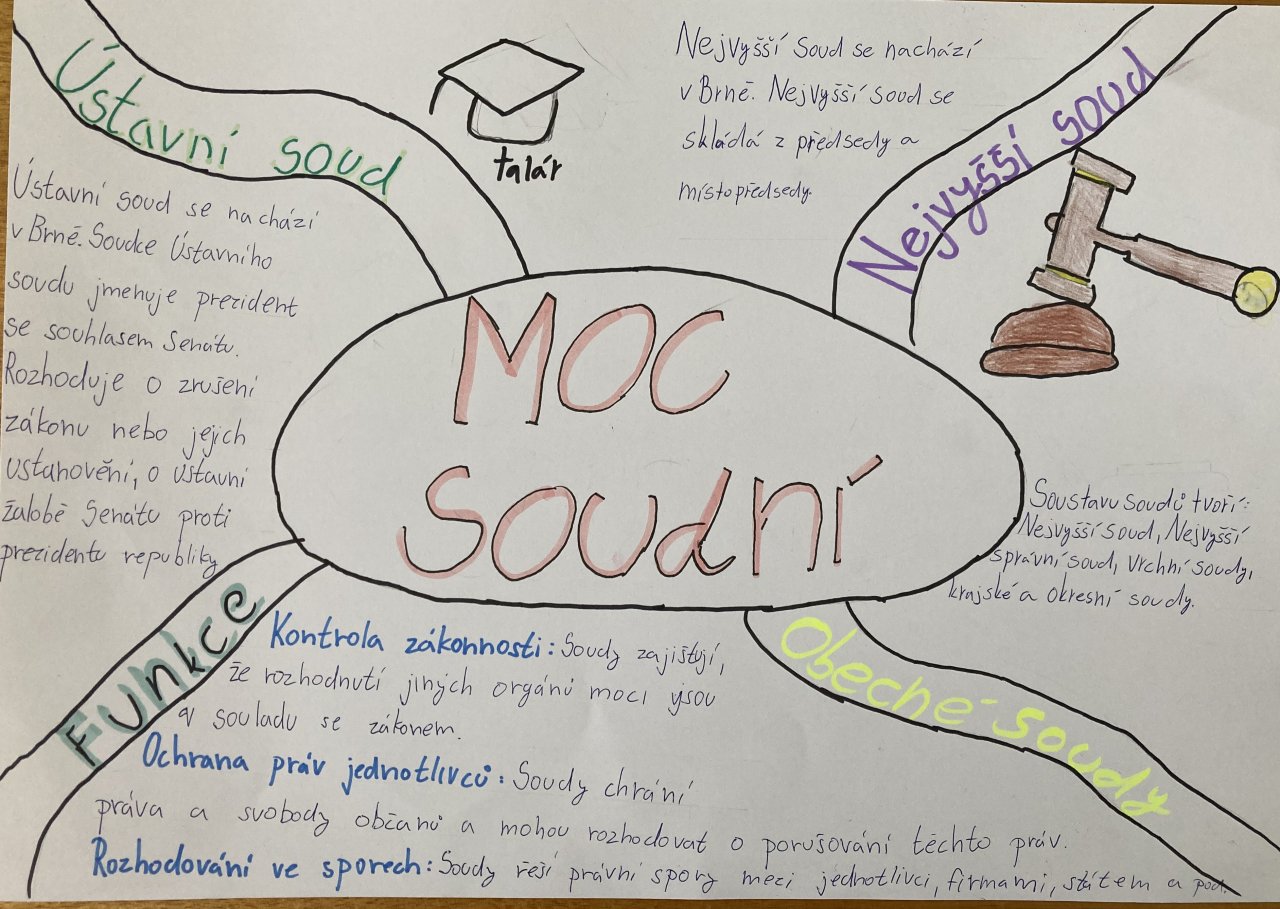 Ústavní soud
Ústavní soud se nachází
v Brně. Soudce Ústavního
soudu jmenuje prezident
se souhlasem Senátu.
Rozhoduje o zrušení
zákonu nebo jejich
ustanovění, o ústavní
žalobě Senátu proti
prezidentu republiky
talár
Nejvyšší soud se nachází
v Brně. Nejvyšší soud se
skládá z předsedy a
místopředsedy.
Nejvyšší soud
MOC
SOUdNÍ
Soustavu soudů tvoří:
Nejvyšší soud, Nejvyšší
správní soud, Vrchní soudy,
krajské a okresní soudy.
Obecné soudy
Funkce
Kontrola zákonnosti: Soudy zajištují,
že rozhodnutí jiných orgánů moci jsou
v souladu se zákonem.
Ochrana práv jednotlivců: Soudy chrání
práva a svobody občanů a mohou rozhodovat o porušování těchto práv.
Rozhodování ve sporech: Soudy řeší právní spory mezi jednotlivci, firmami, státem a pod.